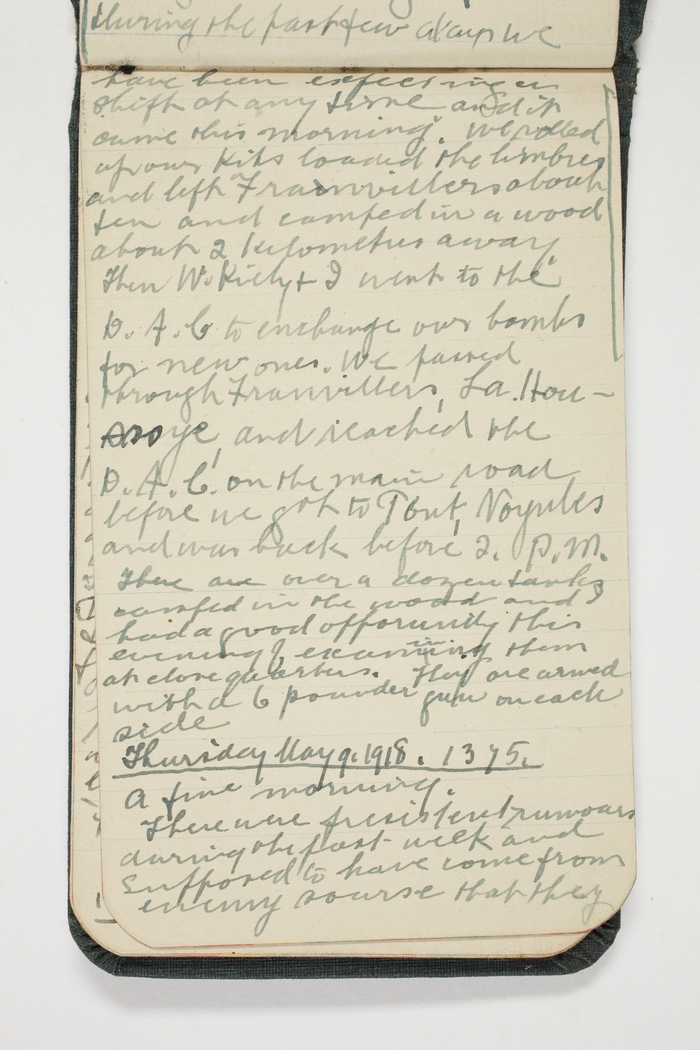 During the past few days we
have been expecting a
shift at any time and it
came this morning. We rolled
up our kits loaded the limbres
and left Franvillers about
ten and camped in a wood
about 2 kilometres away
Then W. Kiely + I went to the
D.A.C to exchange our bombs
for new ones. We passed
through Franvillers, La. Hou-
ssoye, and reached the
D.A.C. on the main road
before we got to Pont, Noyules
and was back before 2. P.M.
There are over a dozen tanks
camped in the wood and I
had a good opportunity this
evening of examining them
at close quarters. They are armed
with a 6 pounder gun on each
side
Thursday May 9. 1918. 1375.
A fine morning.
There were presistent rumours
during the past week and
supposed to have come from
enemy sourse that they